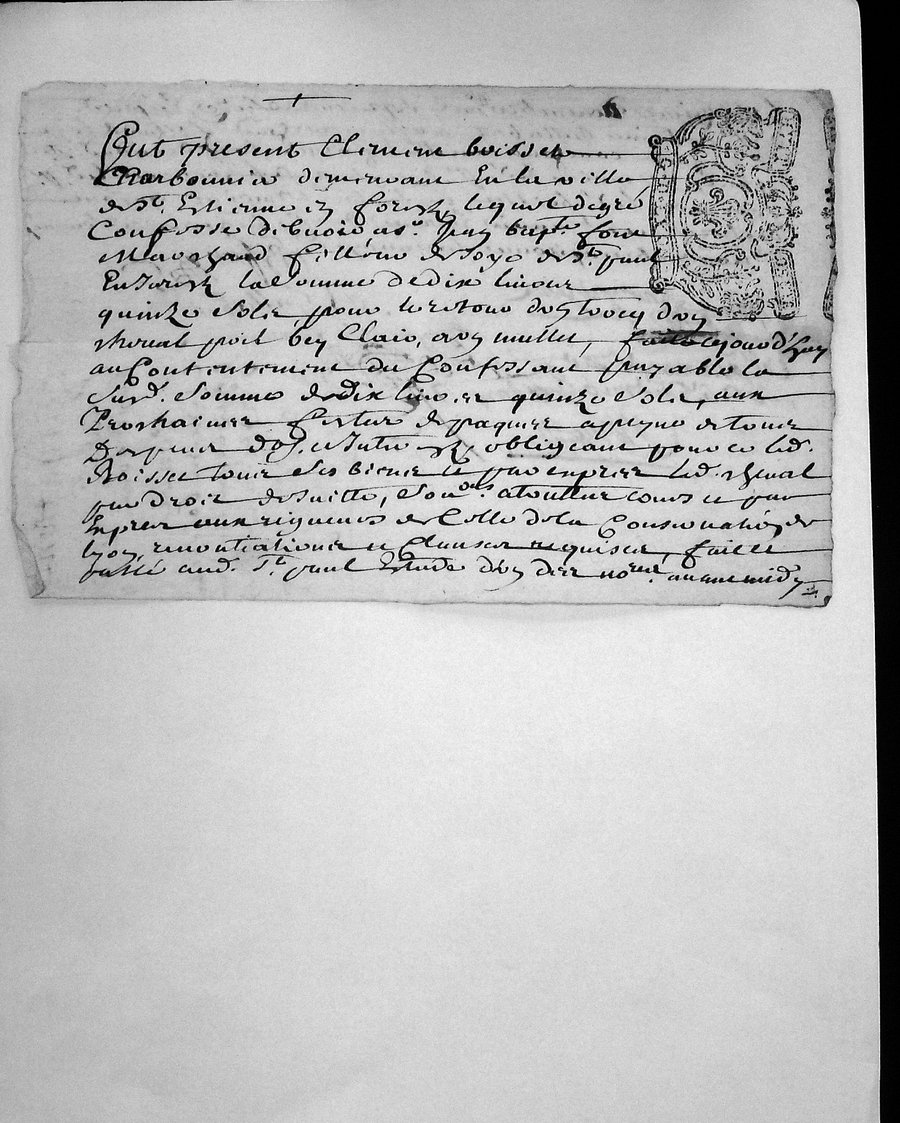 Fut present Clement boisset
Charbonnier demeurant En la ville
de St. Estienne en forestz, lequel de gré
Confesse debvoir a sr. Jean bapte. font
Marchand filleur de soye de St. paul
En Jarestz la somme de dix livres
quinze solz, pour le retour d'un trocq d'un
cheval poil bey Clair, a un mullet, faict ce jourd'huy
au Contentement du Confessant payable la
Susd. somme de dix livres quinze solz, aux
Prochaines festes de paques a peyne de tous
Despens dom. et Intrestz, obligeant pour ce led.
Boisset tous ses biens et par exprez led. cheval
par droit de suitte, soubms. a toutes cours et par
Exprez aux rigueurs de Celle de la Conservation de
lyon, renontiations et Clauses requises, faict et
passé aud. St. paul Estude d'un des nores. avant midy